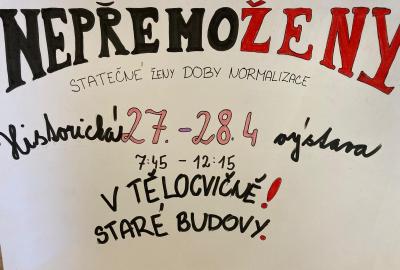 NEPŘEMOŽENY
STATEČNÉ ŽENY DOBY NORMALIZACE
Historická 27. - 28.4 výstava
7:45 - 12:15
V TĚLOCVIČNĚ!
STARÉ BUDOVY.